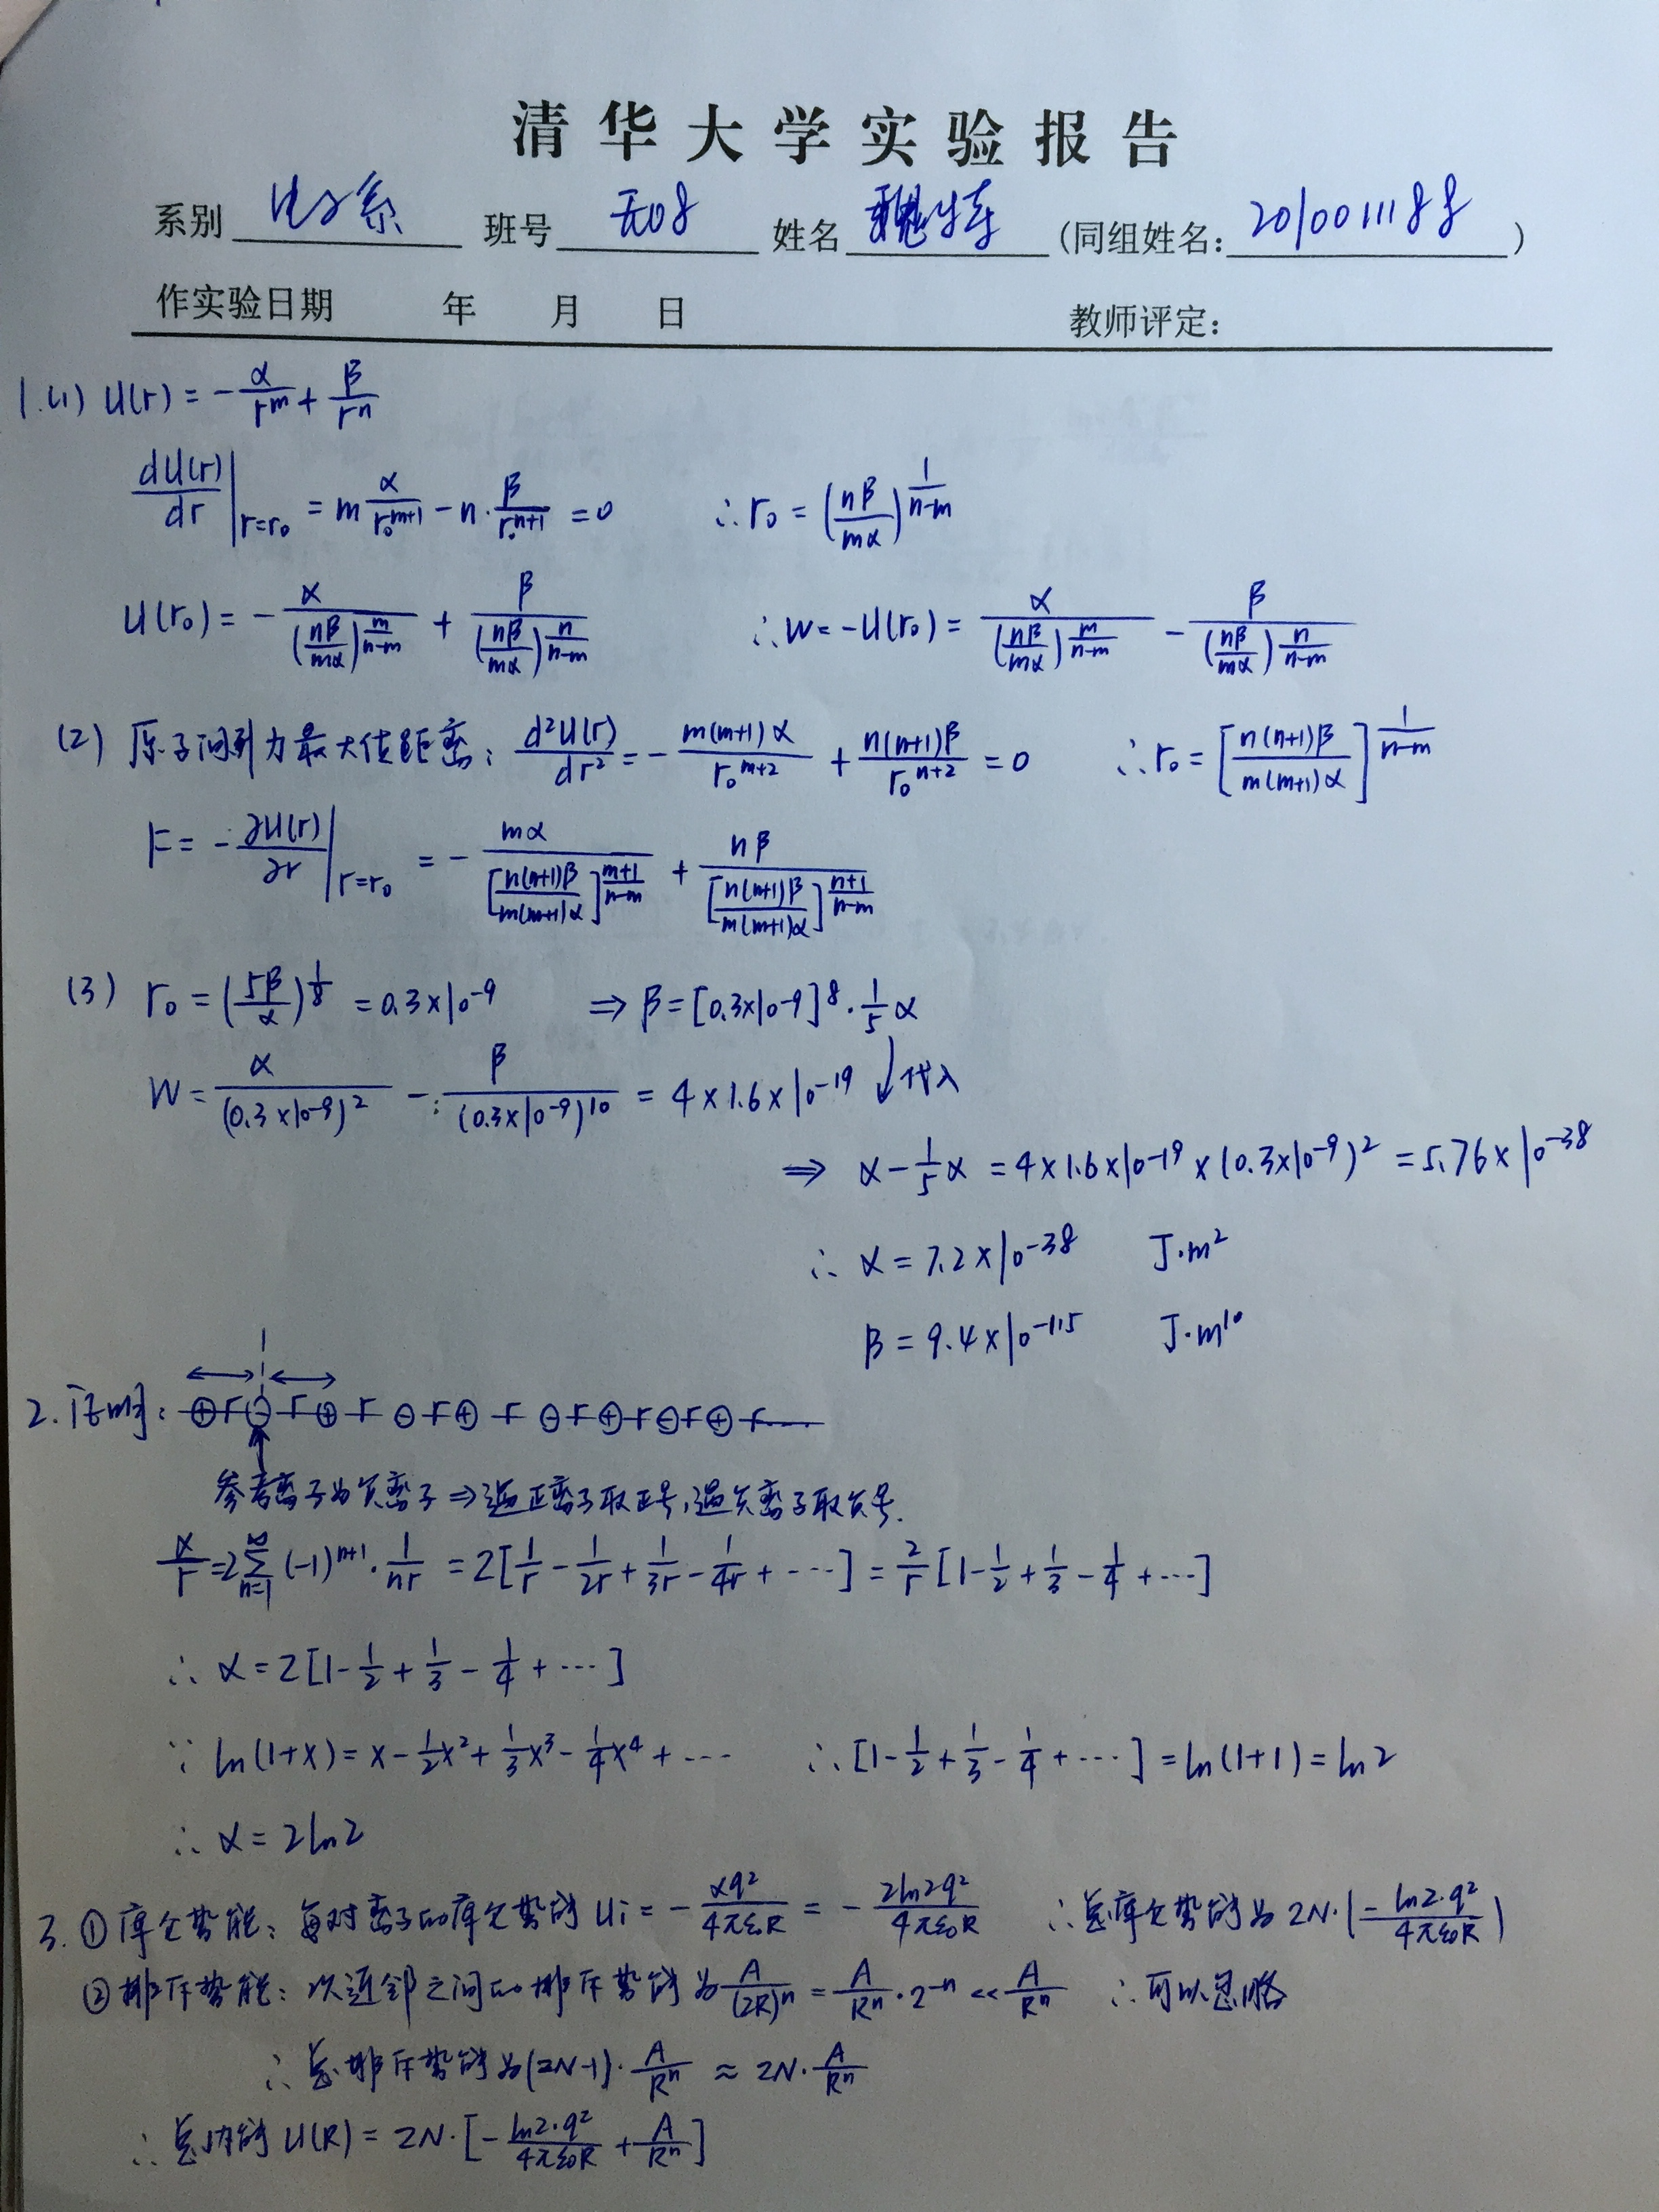 清华大学实验报告
系别 电子系 班号 无08 姓名 魏 (同组姓名: 2010011188 )
作实验日期 年 月 日 教师评定:
1.(1) U(r) = -α/r^m + β/r^n
dU(r)/dr|r=r₀ = m α/r₀^(m+1) - n·β/r₀^(n+1) = 0 ∴ r₀ = (nβ/mα)^(1/(n-m))
U(r₀) = -α/(nβ/mα)^(m/(n-m)) + β/(nβ/mα)^(n/(n-m)) ∴ W = -U(r₀) = α/(nβ/mα)^(m/(n-m)) - β/(nβ/mα)^(n/(n-m))
(2) 原子间引力最大值距离: d²U(r)/dr² = -m(m+1)α/r₀^(m+2) + n(n+1)β/r₀^(n+2) = 0 ∴ r₀ = [n(n+1)β/m(m+1)α]^(1/(n-m))
F = -∂U(r)/∂r|r=r₀ = -mα/[n(n+1)β/m(m+1)α]^((m+1)/(n-m)) + nβ/[n(n+1)β/m(m+1)α]^((n+1)/(n-m))
(3) r₀ = (5β/α)^(1/8) = 0.3×10^-9 ⇒ β = [0.3×10^-9]^8·1/5 α
W = α/(0.3×10^-9)² - β/(0.3×10^-9)^10 = 4×1.6×10^-19 ↓代入
⇒ α - 1/5 α = 4×1.6×10^-19×(0.3×10^-9)² = 5.76×10^-38
∴ α = 7.2×10^-38 J·m²
β = 9.4×10^-115 J·m^10
2. 证明: ⊕ r ⊖ r ⊕ r ⊖ r ⊕ r ⊖ r ⊕ r ⊖ r ⊕ r ....
参考离子为负离子 ⇒ 遇正离子取正号,遇负离子取负号.
α/r = 2∑(n=1→∞) (-1)^(n+1)·1/nr = 2[1/r - 1/2r + 1/3r - 1/4r + ···] = 2/r [1 - 1/2 + 1/3 - 1/4 + ···]
∴ α = 2[1 - 1/2 + 1/3 - 1/4 + ···]
∵ ln(1+x) = x - 1/2 x² + 1/3 x³ - 1/4 x⁴ + ··· ∴ [1 - 1/2 + 1/3 - 1/4 + ···] = ln(1+1) = ln2
∴ α = 2ln2
3. ① 库仑势能: 每对离子的库仑势能 Ui = -αq²/4πε₀R = -2ln2q²/4πε₀R ∴ 总库仑势能为 2N·(-ln2·q²/4πε₀R)
② 排斥势能: 次近邻之间的排斥势能为 A/(2R)^n = A/R^n·2^-n << A/R^n ∴ 可以忽略
∴ 总排斥势能为 (2N-1)·A/R^n ≈ 2N·A/R^n
∴ 总内能 U(R) = 2N·[-ln2·q²/4πε₀R + A/R^n]